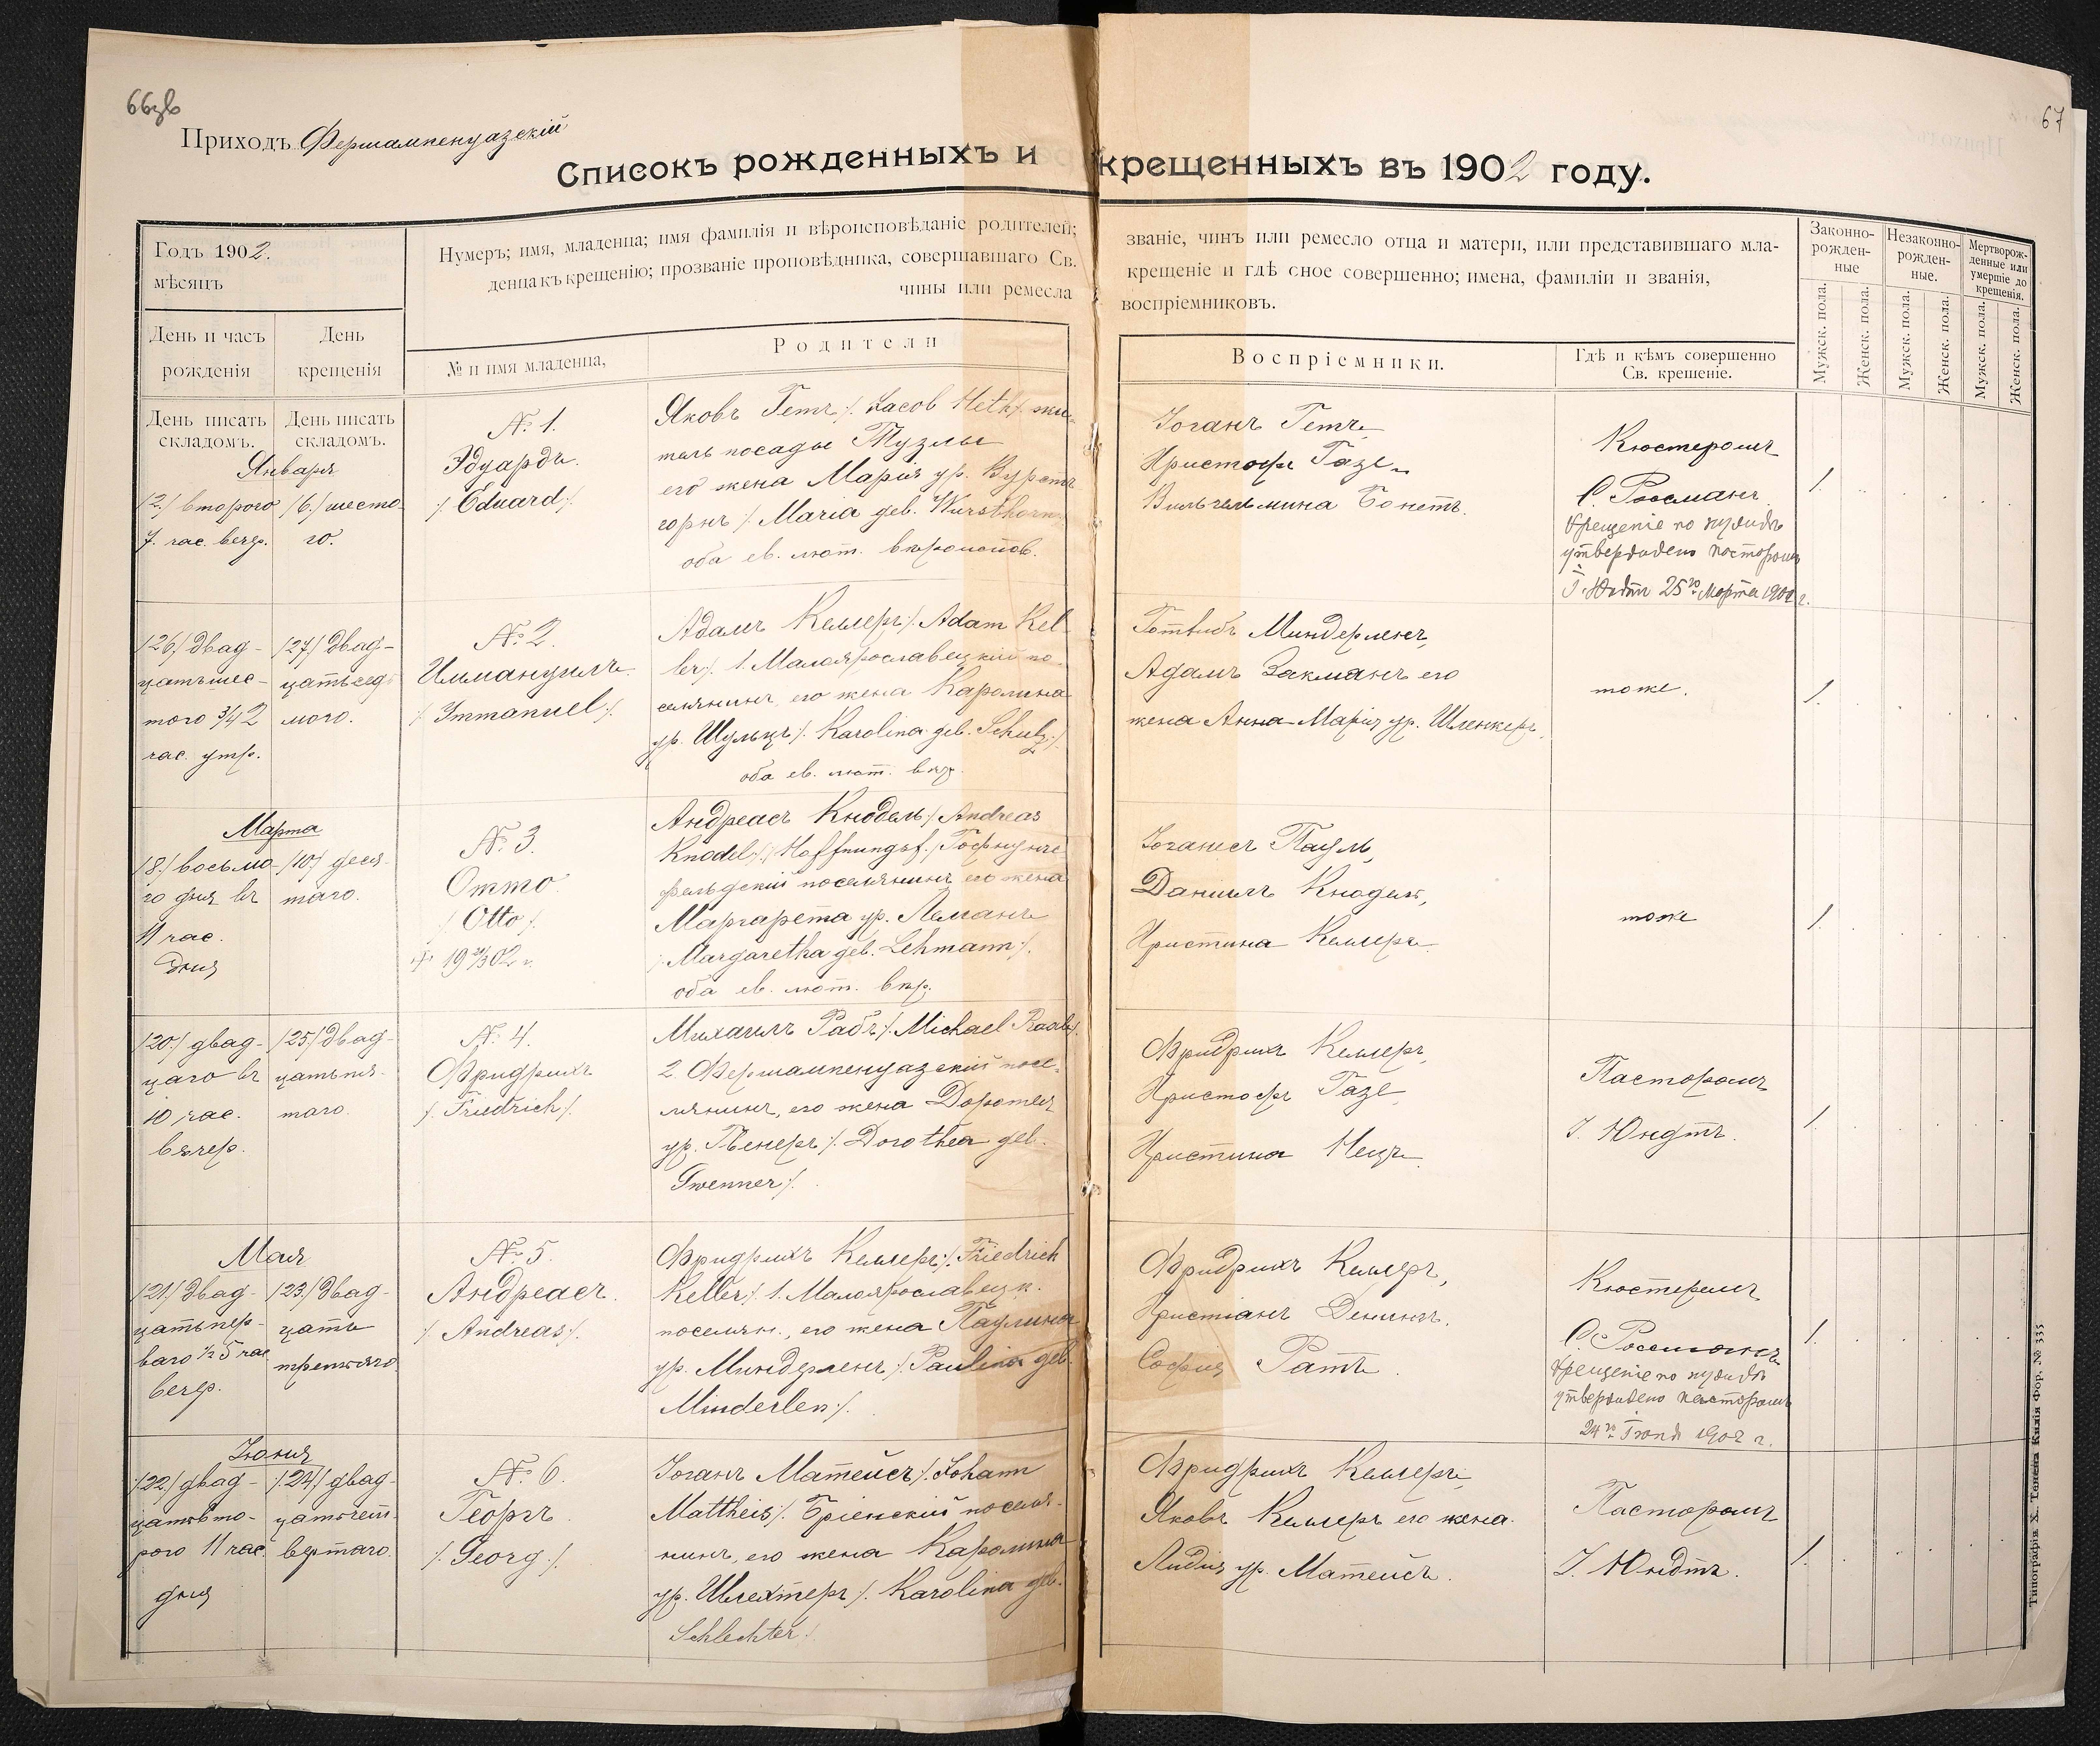 66об
67
Приходъ Фершампенуазскій
Списокъ рожденныхъ и крещенныхъ въ 1902 году.
Годъ 1902.
мѣсяцъ
Нумеръ; имя, младенца; имя фамилія и вѣроисповѣданіе родителей;
денца къ крещенію; прозваніе проповѣдника, совершавшаго Св.
чины или ремесла
званіе, чинъ или ремесло отца и матери, или представившаго мла-
крещеніе и гдѣ оное совершенно; имена, фамиліи и званія,
воспріемниковъ.
Законно-
рожден-
ные
Незаконно-
рожден-
ные.
Мертворож-
денные или
умершіе до
крещенія.
Мужск. пола.
Женск. пола.
Мужск. пола.
Женск. пола.
Мужск. пола.
Женск. пола.
День и часъ
рожденія
День
крещенія
№ и имя младенца,
Родители
Воспріемники.
Гдѣ и кѣмъ совершенно
Св. крещеніе.
День писать
складомъ.
День писать
складомъ.
Января
/2./ второго
7. час. вечер.
/6./ шесто-
го.
№ 1.
Эдуардъ.
/. Eduard /.
Яковъ Гетъ /. Jacob Heth /. жи-
тель посады Тузлы
его жена Марія ур. Вурст-
горнъ /. Maria geb. Wursthorn
оба ев. лют. вѣроисповѣд.
Іоганъ Гетъ,
Христофъ Газе,
Вильгельмина Бонетъ.
Кюстеромъ
С. Россманъ
Крещеніе по нуждѣ
утверждено пасторомъ
І. Юндтъ 25го Марта 1902 г.
1.
/26/ двад-
цатьшес-
того 3/4 2
час. утр.
/27/ двад-
цатьсед-
мого.
№ 2.
Иммануилъ.
/. Immanuel /.
Адамъ Келлеръ /. Adam Kel-
ler /. 1. Малоярославецкій по-
селянинъ его жена Каролина
ур. Шульцъ /. Karolina geb. Schulz /.
оба ев. лют. вѣр.
Готлибъ Миндерленъ,
Адамъ Закманъ его
жена Анна-Марія ур. Шленкеръ.
тоже.
1.
Марта
/8./ восьмо-
го дня въ
11 час.
дня
/10/ деся-
таго.
№ 3.
Отто
/. Otto /.
Андреасъ Кнодель /. Andreas
Knodel /. /. Hoffnungsf. / Гофнунгс-
фельдскій поселянинъ его жена
Маргарета ур. Леманъ
/. Margaretha geb. Lehmann /.
оба ев. лют. вѣр.
Іоганесъ Пауль,
Даніилъ Кнодель,
Христина Келлеръ
тоже
1.
/20./ двад-
цаго въ
10 час.
вечер.
/25/ двад-
цатьпя-
таго.
№ 4.
Фридрихъ
/. Friedrich /.
Михаилъ Рабъ /. Michael Raab /.
2. Фершампенуазскій посе-
лянинъ, его жена Доротея
ур. Гвенеръ /. Dorothea geb.
Gwenner /.
Фридрихъ Келлеръ,
Христофъ Газе,
Христина Нецъ
Пасторомъ
І. Юндтъ.
1.
Мая
/21/ двад-
цатьпер-
ваго 1/2 5 час
вечер.
/23./ двад-
цать
третяго.
№ 5.
Андреасъ.
/. Andreas /.
Фридрихъ Келлеръ /. Friedrich
Keller /. 1. Малоярославецк.
поселян., его жена Паулина
ур. Миндерленъ /. Paulina geb.
Minderlen /.
Фридрихъ Келлеръ,
Христіанъ Денингъ.
Софія Ратъ.
Кюстеромъ
С. Россманъ
Крещеніе по нуждѣ
утверждено пасторомъ
24го Іюня 1902 г.
1.
Іюня
/22./ двад-
цатьвто-
рого 11 час.
дня
/24/ двад-
цатьчет-
вертаго.
№ 6.
Георгъ
/. Georg /.
Іоганъ Матейсъ /. Johann
Mattheis /. Бріенскій поселя-
нинъ, его жена Каролина
ур. Шлехтеръ /. Karolina geb.
Schlechter /.
Фридрихъ Келлеръ,
Яковъ Келлеръ его жена
Лидія ур. Матейсъ.
Пасторомъ
І. Юндтъ.
1.